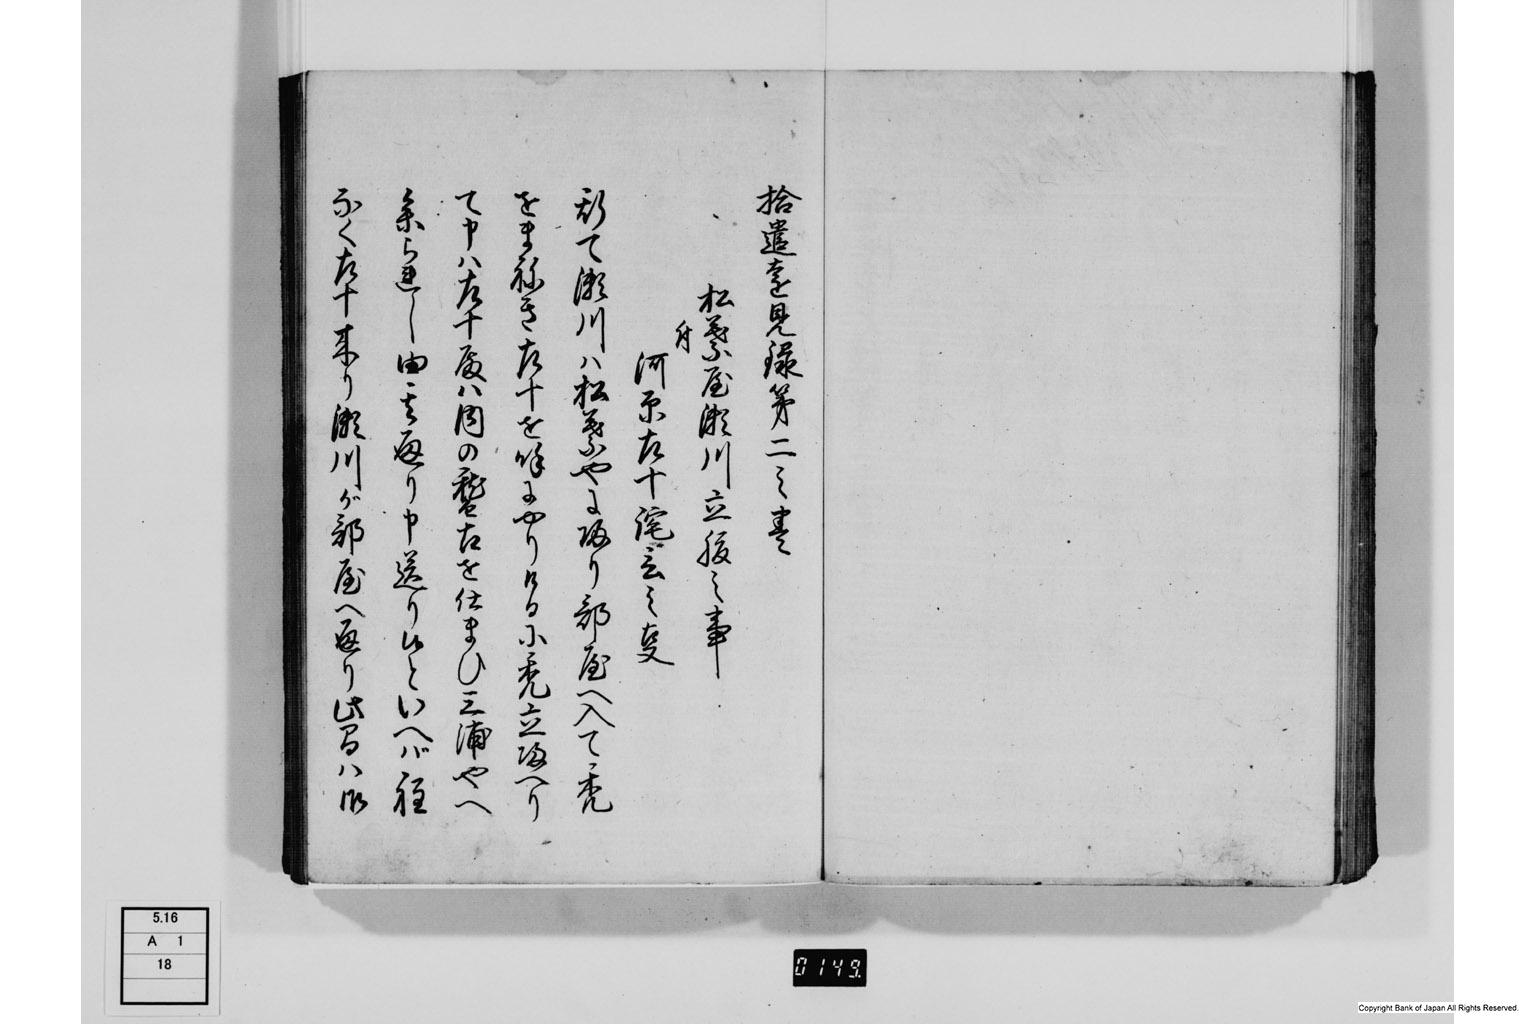 拾遺遠見録第二之書
松葉屋瀬川立腹之事
付
河原左十詫言之事
斯て瀬川ハ松葉やに帰り部屋へ入て禿
をまねき左十を呼にやりける小禿立帰へり
て申ハ左十殿ハ内の稽古を仕まひ三浦やへ
参られし由て其返り申送り候といへバ程
なく左十来り瀬川が部屋へ通り此間ハ
5.16
A 1
18
0149.
Copyright Bank of Japan All Rights Reserved.